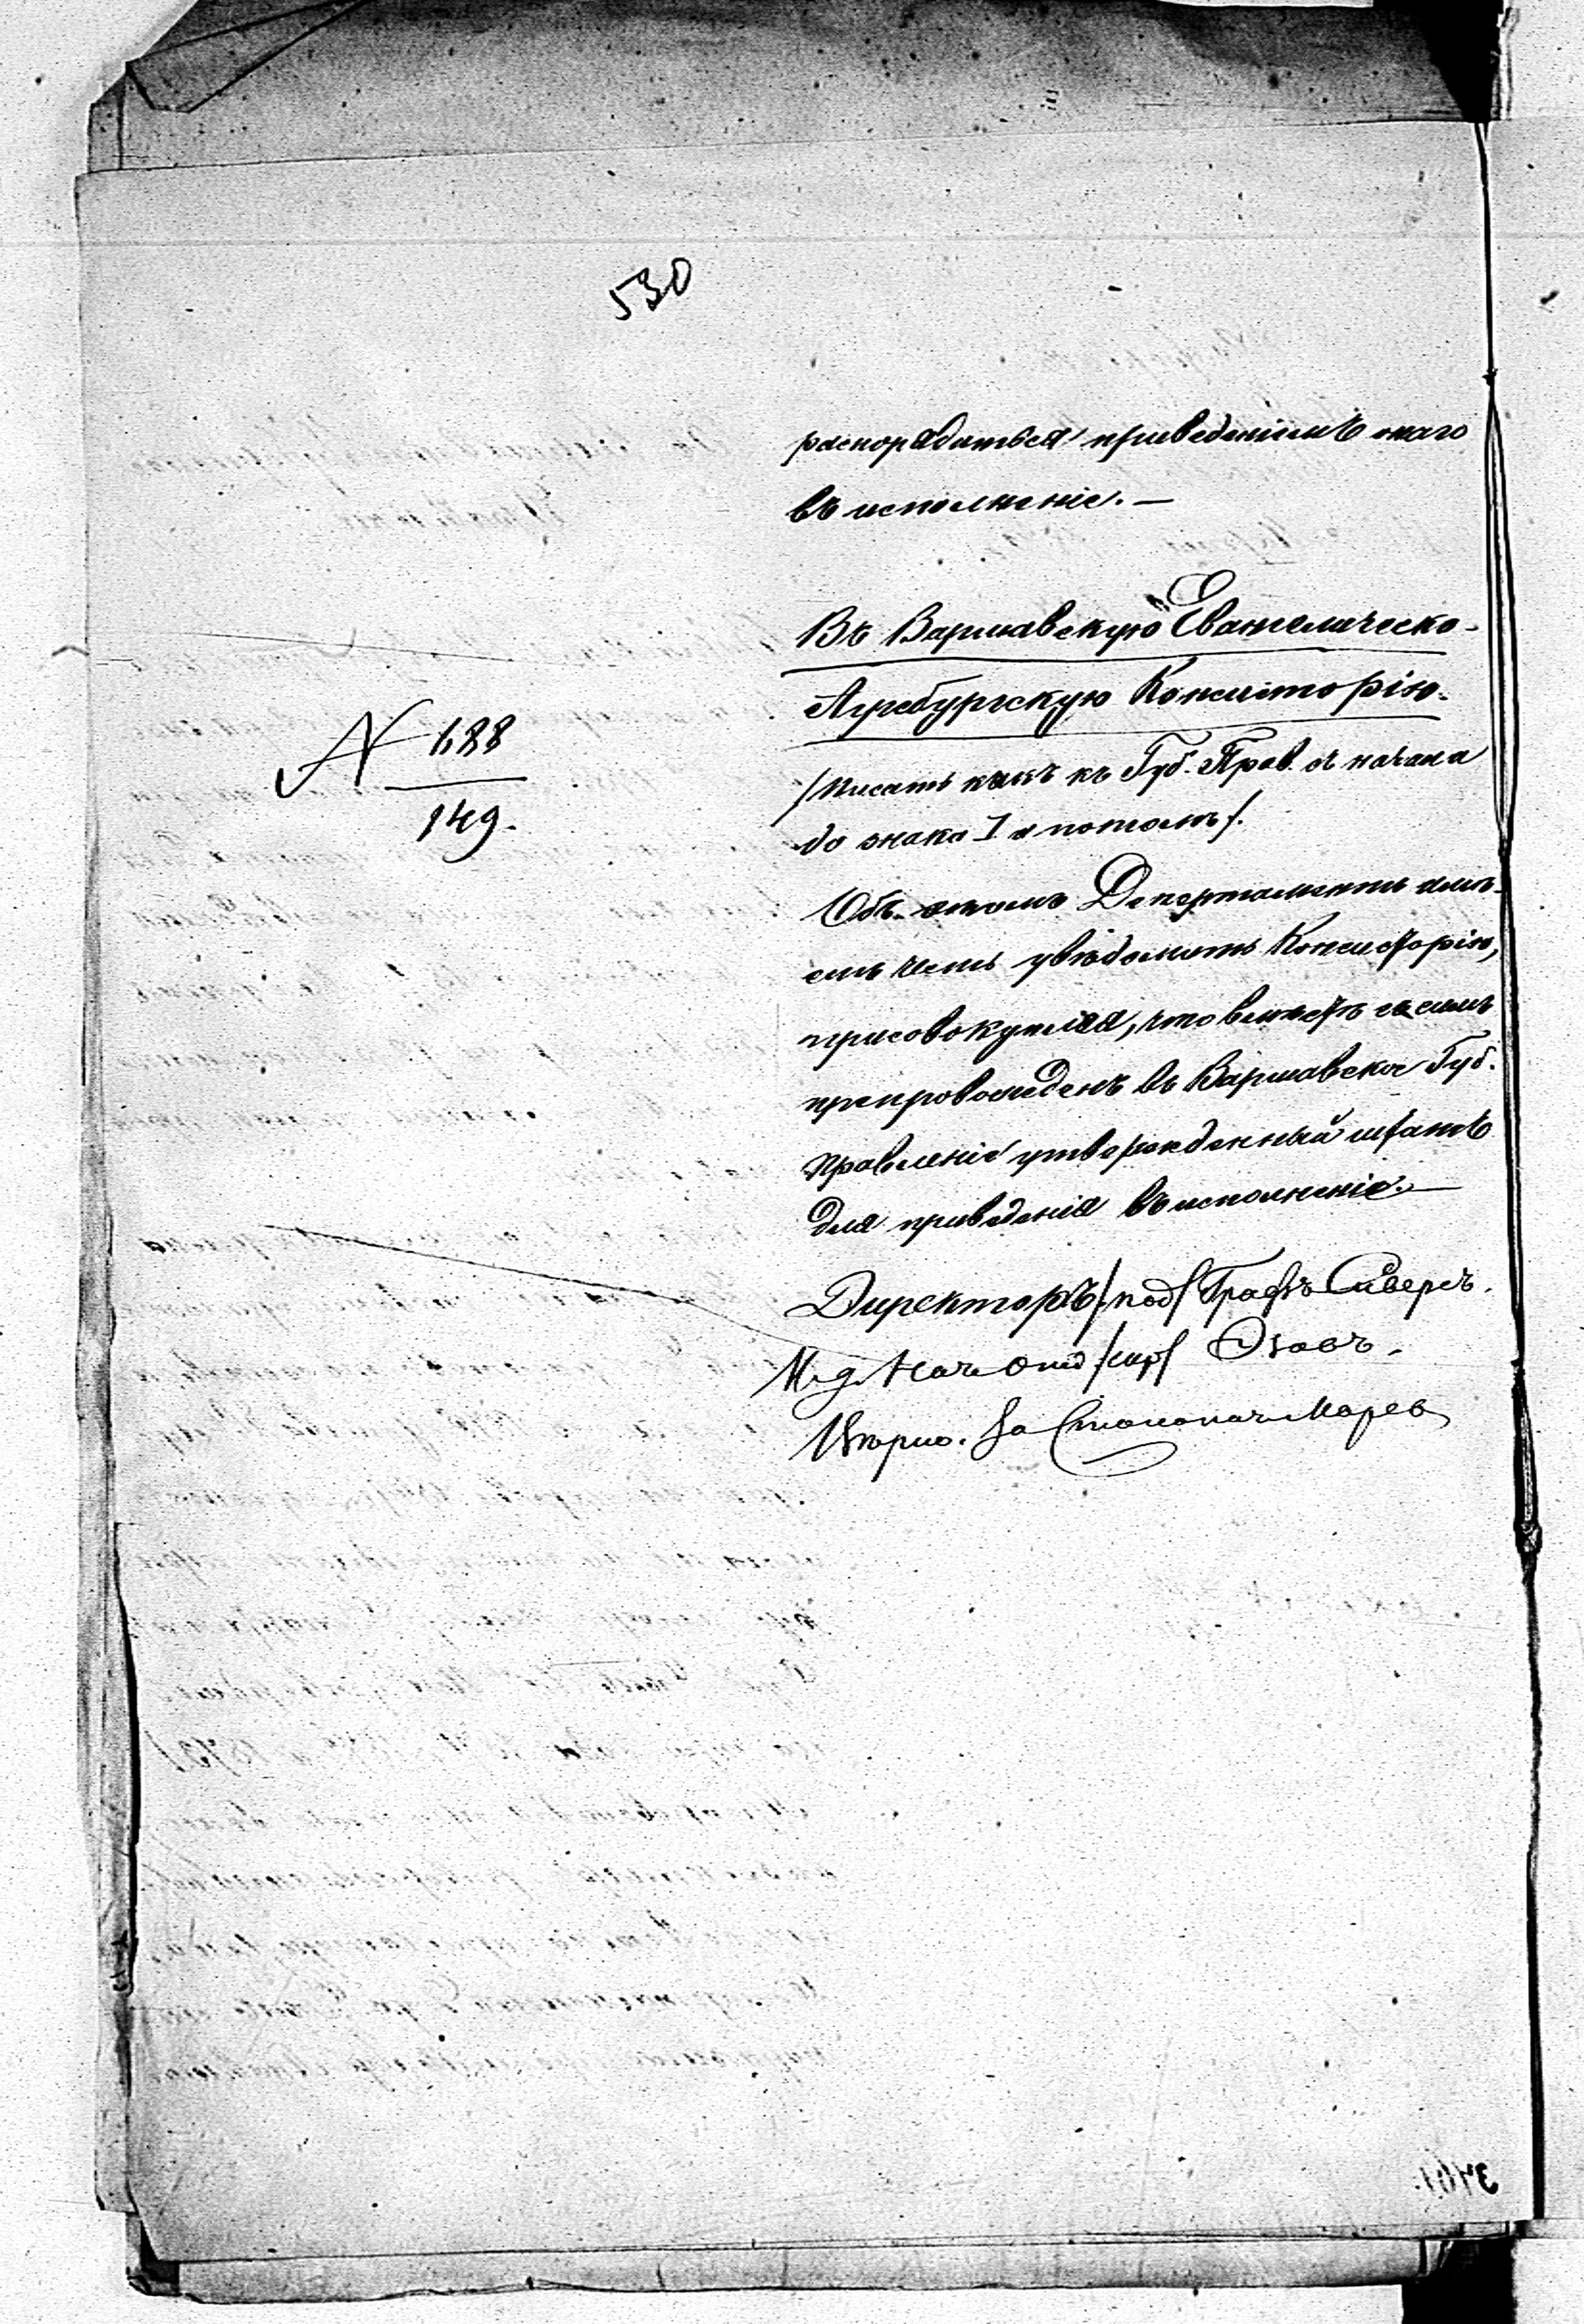 530
распорядиться приведеніемъ онаго
въ исполненіе. —
Въ Варшавскую Евангелическо-
Аугсбургскую Консисторію.
№ 688
149.
/Писать какъ къ Губ. Прав. съ начала
до знака I а потомъ/.
Объ этомъ Департаментъ имѣ-
етъ честь увѣдомить Консисторію,
присовокупляя, что вмѣстѣ съ симъ
препровожденъ въ Варшавское Губ.
Правленіе утвержденный штатъ
для приведенія въ исполненіе. —
Директоръ /под/ Графъ Сиверсъ.
И. д. Нач. Отд /скр/
Вѣрно. За Столонач